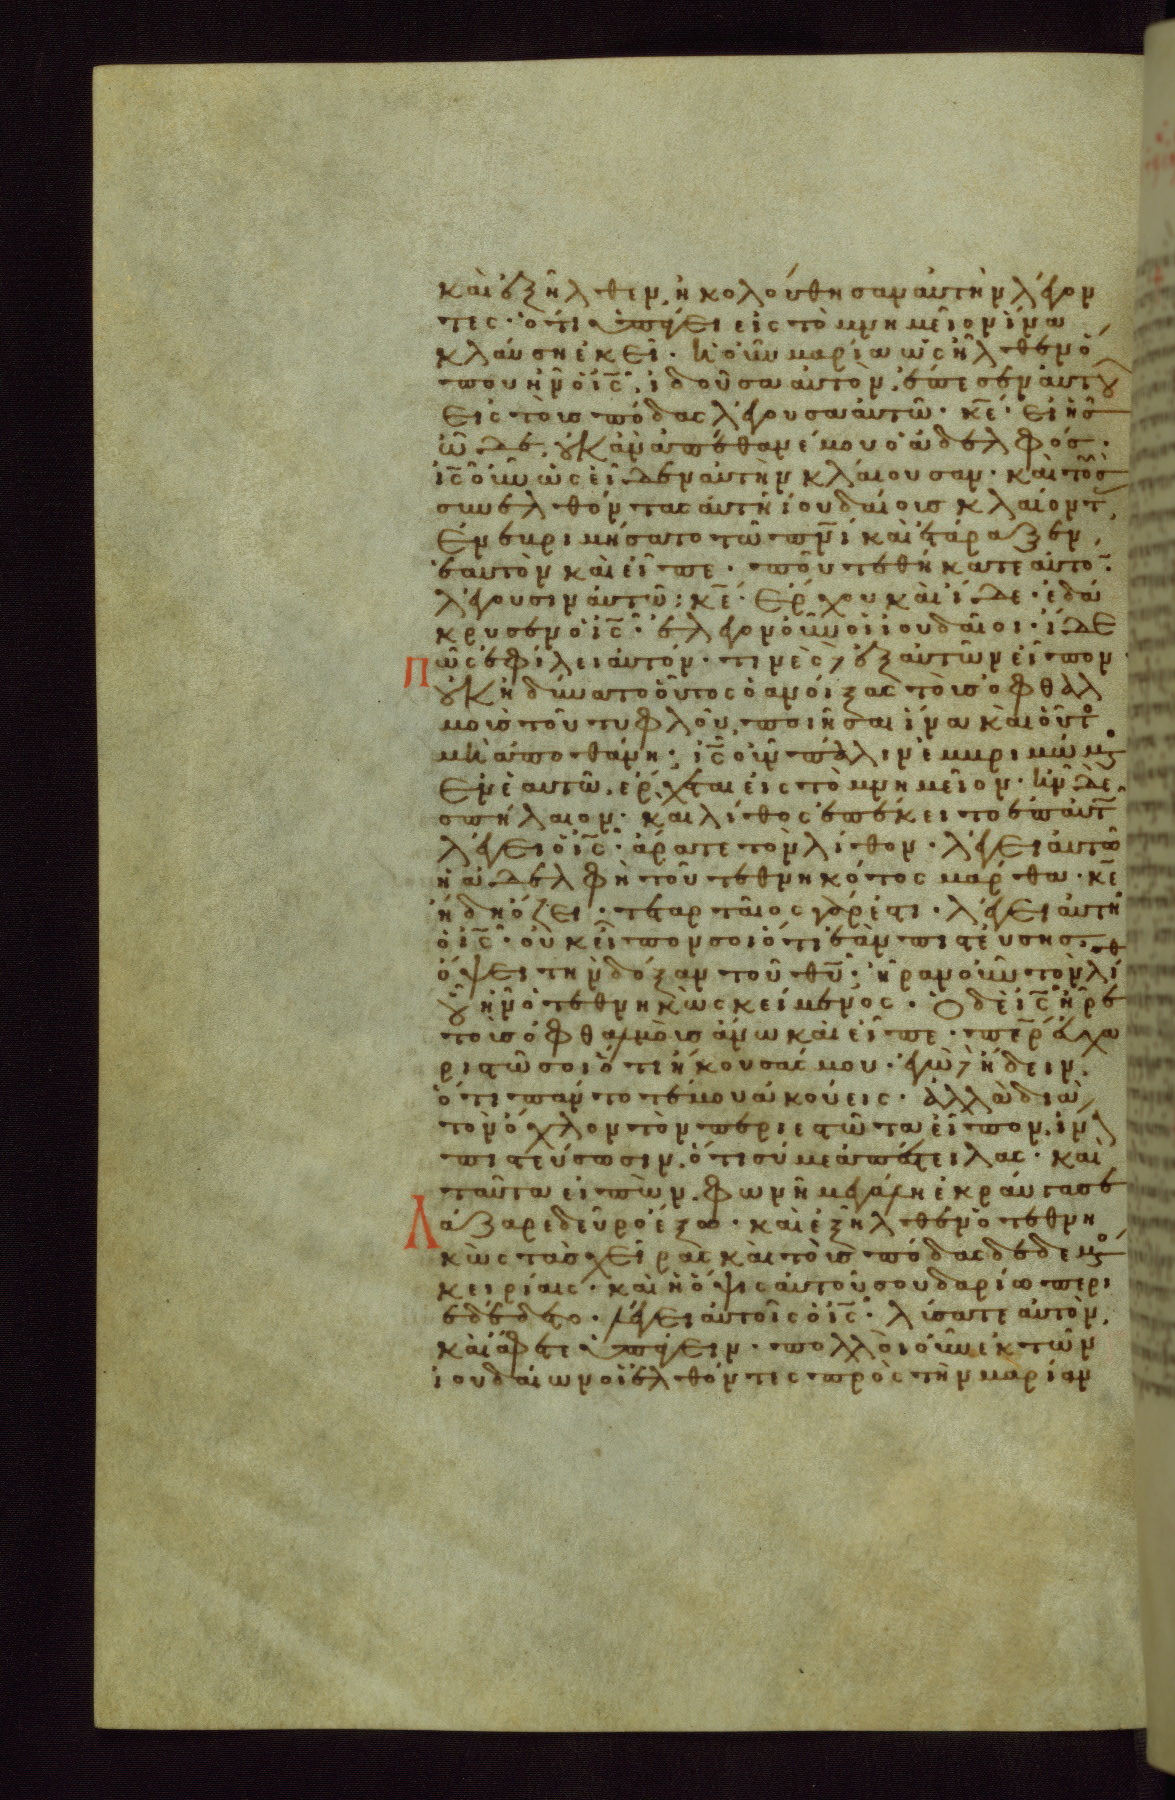 καὶ ἐξῆλθεν, ἠκολούθησαν αὐτὴν λέγον
τες· ὅτι ὑπάγει εἰς τὸ μνημεῖον ἵνα
κλαύσῃ ἐκεῖ· ἡ οὖν μαρία ὡς ἦλθεν ὅ
που ἦν ὁ ις̅, ἰδοῦσα αὐτὸν, ἔπεσεν αὐτοῦ
εἰς τοὺς πόδας λέγουσα αὐτῷ· κε̅· εἰ ἦς
ὧδε, οὐκ ἂν ἀπέθανέ μου ὁ ἀδελφός·
ις̅ οὖν ὡς εἶδεν αὐτὴν κλαίουσαν· καὶ τοὺς
συνελθόντας αὐτῇ ἰουδαίους κλαίοντ,
ἐνεβριμήσατο τῷ πνι̅ καὶ ἐτάραξεν,
ἑαυτὸν καὶ εἶπε· ποῦ τεθήκατε αὐτό̅·
λέγουσιν αὐτῷ· κε̅· ἔρχου καὶ ἴδε· ἐδά
κρυσεν ὁ ις̅· ἔλεγον οὖν οἱ ἰουδαῖοι· ἴδε
πῶς ἐφίλει αὐτόν· τινὲς δὲ ἐξ αὐτῶν εἶπον·
οὐκ ἠδύνατο οὗτος ὁ ἀνοίξας τοὺς ὀφθαλ
μοὺς τοῦ τυφλοῦ, ποιῆσαι ἵνα καὶ οὗτο
μὴ ἀποθάνῃ· ις̅ οὖν πάλιν ἐμβριμώμενο
ἐν ἑαυτῷ, ἔρχεται εἰς τὸ μνημεῖον· ἦν δὲ
σπήλαιον· καὶ λίθος ἐπέκειτο ἐπ αὐτ
λέγει ὁ ις̅· ἄρατε τὸν λίθον· λέγει αὐτῷ
ἡ ἀδελφὴ τοῦ τεθνηκότος μάρθα· κε̅
ἤδη ὄζει· τεταρταῖος γάρ ἐστι· λέγει αὐτῇ
ὁ ις̅· οὐκ εἶπόν σοι ὅτι ἐὰν πιστεύσῃς,
ὄψει τὴν δόξαν τοῦ θυ̅· ἦραν οὖν τὸν λίθο
οὗ ἦν ὁ τεθνηκὼς κείμενος· ὁ δὲ ις̅ ἦρε
τοὺς ὀφθαλμοὺς ἄνω καὶ εἶπε· περ̅ εὐχα
ριστῶ σοι ὅτι ἤκουσάς μου· ἐγὼ δὲ ᾔδειν,
ὅτι πάντοτέ μου ἀκούεις· ἀλλὰ διὰ
τὸν ὄχλον τὸν περιεστῶτα εἶπον, ἵνα
πιστεύσωσιν, ὅτι σύ με ἀπέστειλας· καὶ
ταῦτα εἰπὼν, φωνῇ μεγάλῃ ἐκραύγασε
λάζαρε δεῦρο ἔξω· καὶ ἐξῆλθεν ὁ τεθνη
κὼς τὰς χεῖρας καὶ τοὺς πόδας δεδεμένο
κειρίαις· καὶ ἡ ὄψις αὐτοῦ σουδαρίω περι
εδέδετο· λέγει αὐτοῖς ὁ ις̅· λύσατε αὐτὸν,
καὶ ἄφετε ὑπάγειν· πολλοὶ οὖν ἐκ τῶν
ἰουδαίων οἱ ἐλθόντες πρὸς τὴν μαρίαν